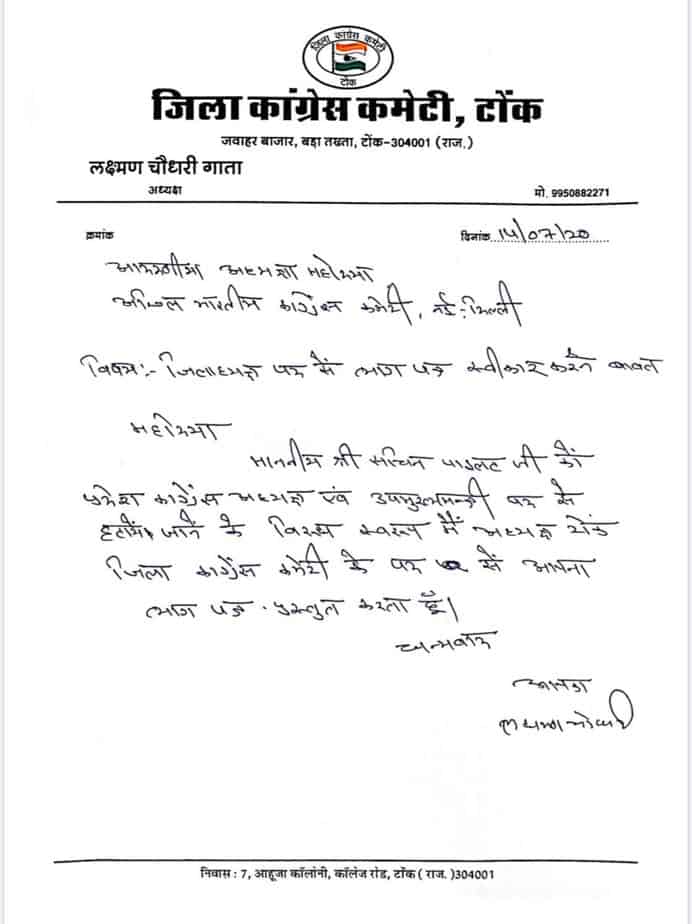 जिला कांग्रेस कमेटी
टोंक
जिला कांग्रेस कमेटी, टोंक
जवाहर बाजार, बड़ा तख्ता, टोंक-304001 (राज.)
लक्ष्मण चौधरी गाता
अध्यक्ष
मो. 9950882271
क्रमांक
दिनांक 14/07/20
आदरणीया अध्यक्षा महोदया
अखिल भारतीय कांग्रेस कमेटी, नई-दिल्ली
विषय:- जिलाध्यक्ष पद से त्याग पत्र स्वीकार करने बाबत
महोदया
माननीय श्री सचिन पायलट जी को
प्रदेश कांग्रेस अध्यक्ष एवं उपमुख्यमन्त्री पद से
हटाये जाने के विरोध स्वरूप मैं अध्यक्ष टोंक
जिला कांग्रेस कमेटी के पद से अपना
त्याग पत्र प्रस्तुत करता हूँ।
धन्यवाद
आपका
लक्ष्मण चौधरी
निवास : 7, आहूजा कॉलोनी, कॉलेज रोड, टोंक ( राज. )304001